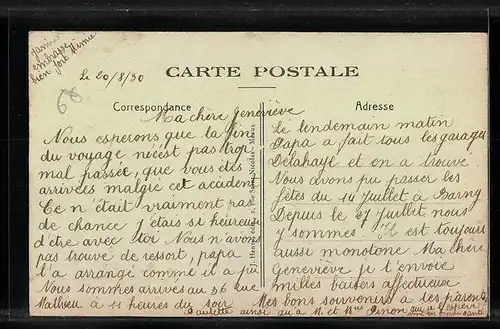 Jannie
embrasse
bien fort Mimie
Le 20/8/30
68
CARTE POSTALE
Correspondance
Adresse
Ma chère Geneviève
Nous esperons que la fin
du voyage n'est pas trop
mal passée, que vous êtes
arrivées malgré cet accident
Ce n'était vraiment pas
de chance j'étais si heureuse
d'être avec toi Nous n'avons
pas trouvé de ressort, papa
l'a arrangé comme il a pu
Nous sommes arrivés au 36 rue
Mathieu à 11 heures du soir
Le lendemain matin
Papa a fait tous les garages
Delahaye et en a trouvé
Nous avons pu passer les
fêtes du 14 Juillet à
Depuis le 27 Juillet nous
y sommes. Il est toujours
aussi monotone Ma chère
Geneviève je t'envoie
milles baisers affectueux
Mes bons souvenirs à tes parents
Paulette ainsi qu'à M. et Mme Pinon qui je espère
sont en bonne santé